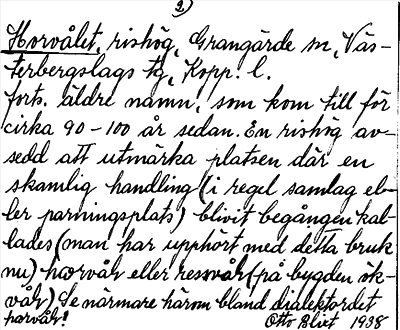 2)
Horvålet, rishög, Grangärde sn, Väs-
terbergslags tg, Kopp. l.
forts. äldre namn, som kom till för
cirka 90-100 år sedan. En rishög av-
sedd att utmärka platsen där en
skamlig handling (i regel samlag el-
ler parningsplats) blivit begången kal-
lades (man har upphört med detta bruk
nu) horvål eller resvål (på bygden sk-
vål) Se närmare härom bland dialektordet
horvål!
Otto Blixt 1938